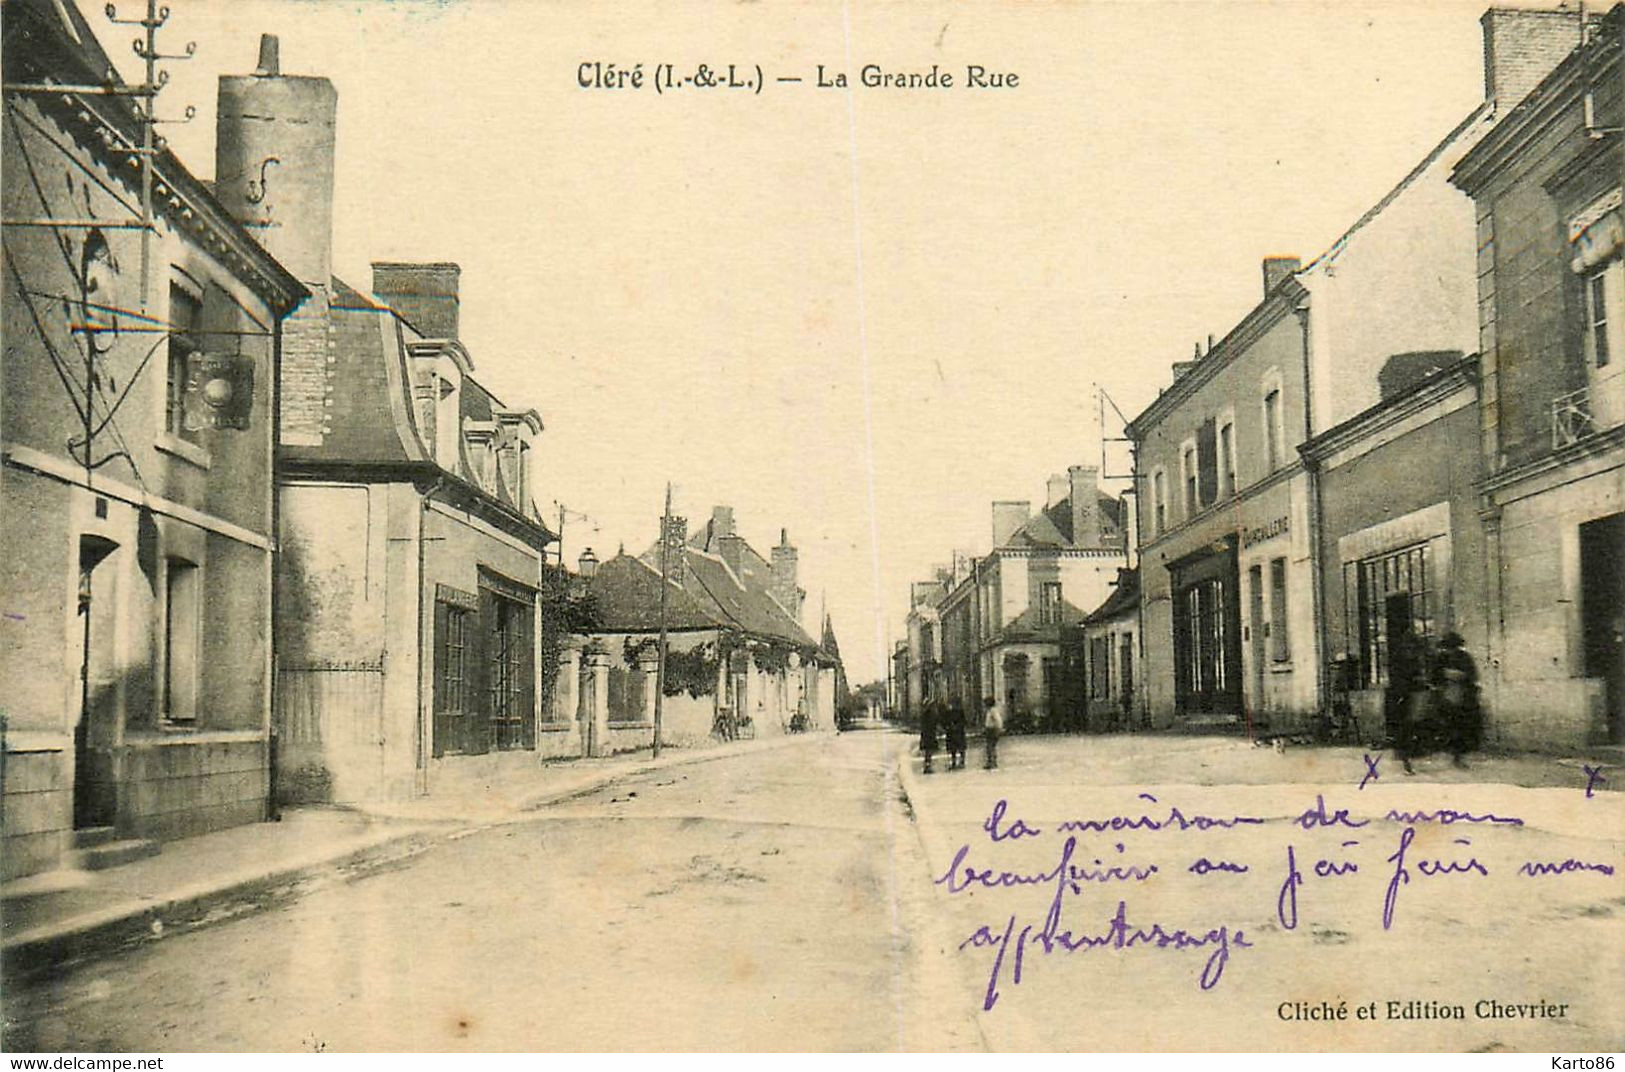 Cléré (I.-&-L.) — La Grande Rue
QUINCAILLERIE
x x
la maison de mon
beaufrère ou j'ai fais mon
apprentisage
Cliché et Edition Chevrier
www.delcampe.net
Karto86